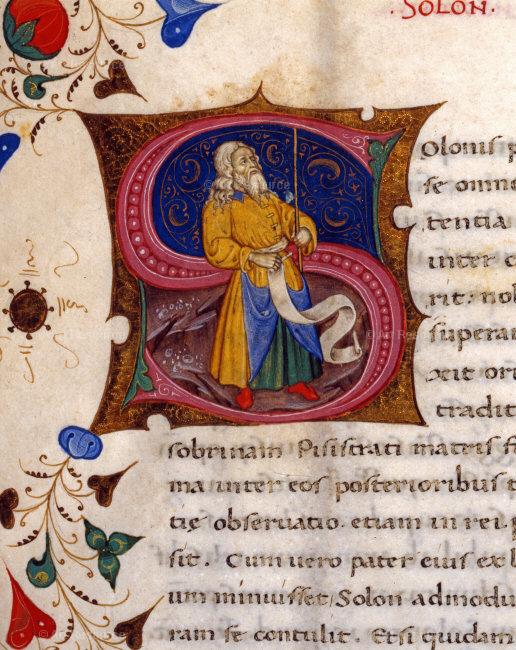 · SOLON ·
Solonus
se omne
tentia
inter
rit. no
superan
xit or
tradit
sobrinam Pisistrati matris f
ma inter eos posterioribus t
tię observatio. etiam in rei p
sit. Cum vero pater eius ex
um minuisset, Solon admodu
ram se contulit. Etsi quidam